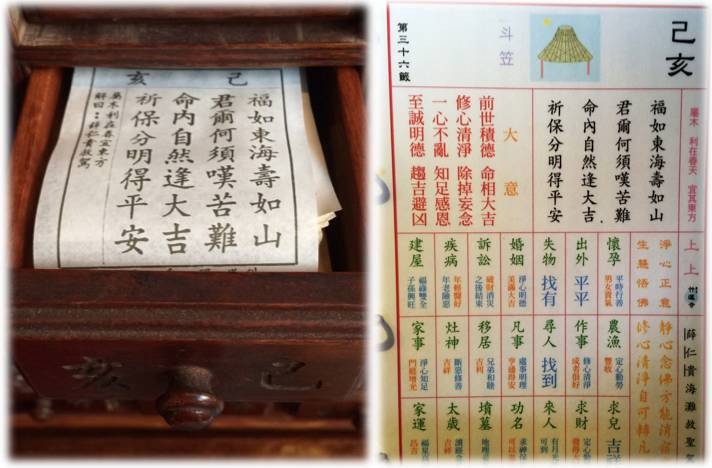 己亥
福如東海壽如山
君爾何須嘆苦難
命內自然逢大吉
祈保分明得平安
屬木利在春宜東方
解曰：薛仁貴救駕
己亥
己亥
斗笠
第三十六籤
屬木 利在春天 宜其東方
福如東海壽如山
君爾何須嘆苦難
命內自然逢大吉
祈保分明得平安
大意
前世積德 命相大吉
修心清淨 除掉妄念
一心不亂 知足感恩
至誠明德 趨吉避凶
上上
淨心正意
生慧悟佛
懷孕 平時行善 男女貴氣
出外 平平
失物 找有
婚姻 淨心明德 美滿大吉
訴訟 破財消災 之後結束
疾病 年輕醫好 年老險惡
建屋 福祿雙全 子孫興旺
薛仁貴海灘救聖
靜心念佛方能消宿
修心清淨自可轉凡
農漁 定心勤勞 豐收
作事 修心清淨 成者很好
尋人 找到
凡事 處事明理 亨通得安
移居 兄弟和睦 吉利
灶神 斷惡修善 吉祥
家事 淨心知足 門庭增光
求兒 吉
求財 定心
來人 有月光 可到
功名
墳墓 地理
太歲 吉祥
家運 福星 昌吉